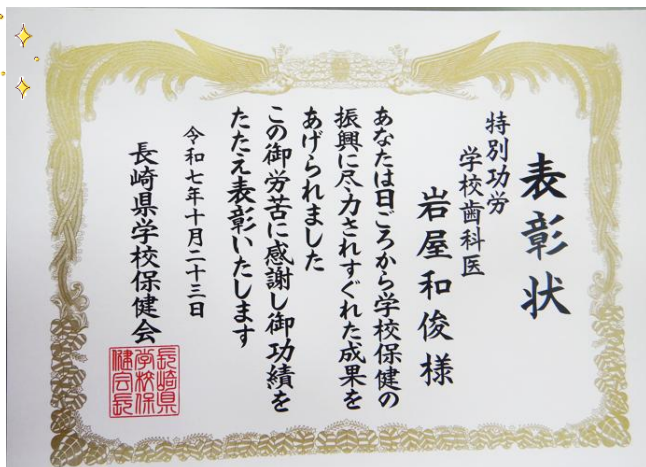 表彰状
特別功労
学校歯科医
岩屋和俊様
あなたは日ごろから学校保健の
振興に尽力されすぐれた成果を
あげられました
この御労苦に感謝し御功績を
たたえ表彰いたします
令和七年十月二十三日
長崎県学校保健会
長崎県
学校保
健会長